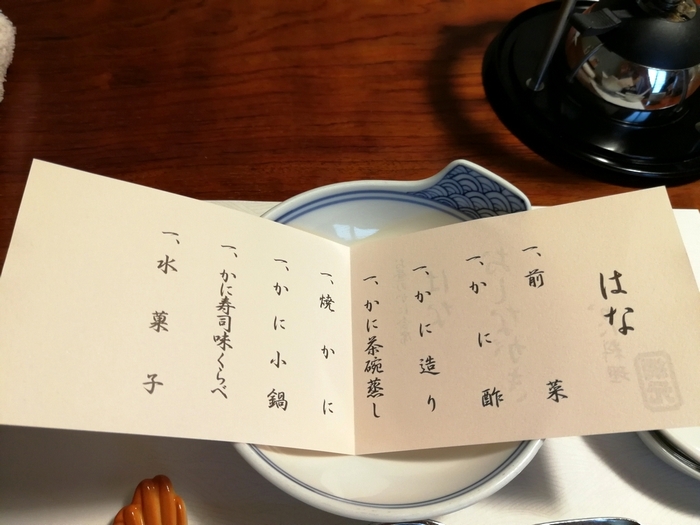 はな
一、前菜
一、かに酢
一、かに造り
一、かに茶碗蒸し
一、焼かに
一、かに小鍋
一、かに寿司味くらべ
一、水菓子